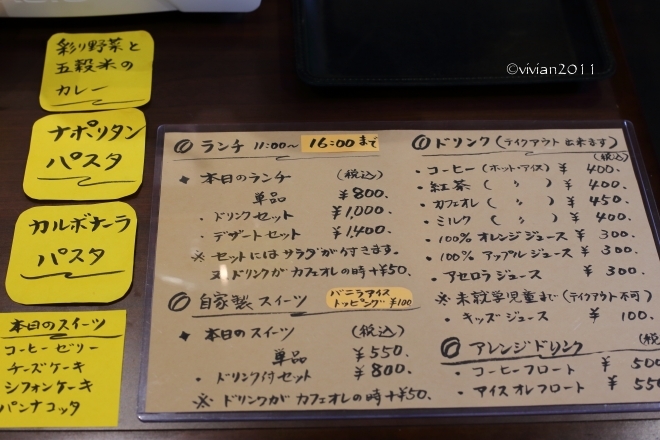 彩り野菜と
五穀米の
カレー
ナポリタン
パスタ
カルボナーラ
パスタ
本日のスイーツ
コーヒーゼリー
チーズケーキ
シフォンケーキ
パンナコッタ
◎ ランチ 11:00～ 16:00まで
◆ 本日のランチ (税込)
単品 ¥800.
・ドリンクセット ¥1,000.
・デザートセット ¥1,400.
※ セットにはサラダが付きます。
又ドリンクがカフェオレの時+¥50.
◎ 自家製スイーツ バニラアイストッピング¥100
◆ 本日のスイーツ (税込)
単品 ¥550.
・ドリンク付セット ¥800.
※ ドリンクがカフェオレの時+¥50.
◎ ドリンク (テイクアウト出来ます)
(税込)
・コーヒー (ホット・アイス) ¥ 400.
・紅茶 ( 〃 ) ¥ 400.
・カフェオレ ( 〃 ) ¥ 450.
・ミルク ( 〃 ) ¥ 400.
・100% オレンジジュース ¥ 300.
・100% アップルジュース ¥ 300.
・アセロラジュース ¥ 300.
※ 未就学児童まで (テイクアウト不可)
・キッズジュース ¥ 100.
◎ アレンジドリンク (税
・コーヒーフロート ¥ 500
・アイスオレフロート ¥ 550
©vivian2011